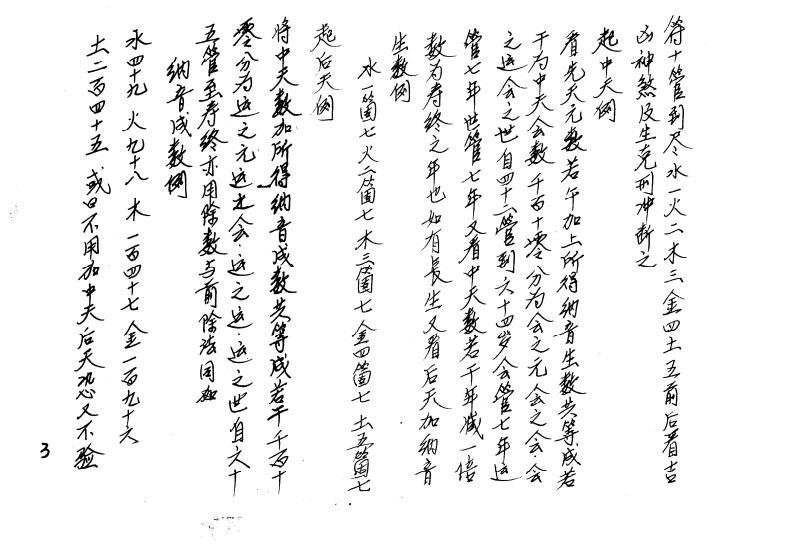 符十管到尽水一火二木三金四土五前后看吉
凶神煞及生克刑冲断之
起中天例
看先天元数若干加上所得纳音生数共等成若
干为中天会数千百十零分为会之元会之会会
之运会之世自四十六管到六十四岁会管七年运
管七年世管七年又看中天数若干年减一倍
数为寿终之年也如有長生又看后天加纳音
生数例
水一箇七火二箇七木三箇七金四箇七土五箇七
起后天例
将中天数加所得纳音成数共等成若干千百十
零分为运之元运之会运之运运之世自六十
五管至寿终亦用除数与前除法同如
纳音成数例
水四十九火九十八木一百四十七金一百九十六
土二百四十五或曰不用加中天后天恐又不验
3